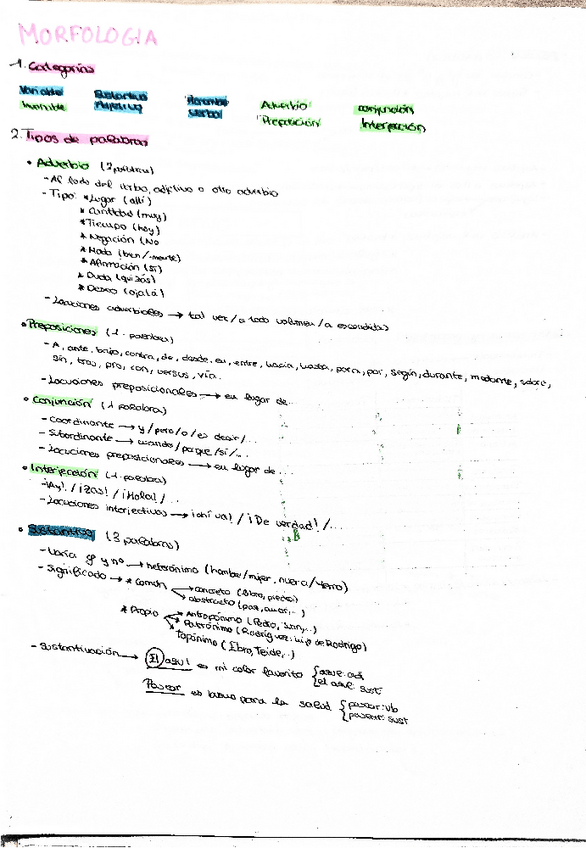 MORFOLOGIA
1. Categorías
Variable Sustantivo Pronombre Adverbio conjunción
Invariable Adjetivo Verbal Preposición Interjección
2. Tipos de palabras
• Adverbio (2 palabras)
- Al lado del verbo, adjetivo o otro adverbio
- Tipo: * Lugar (allí)
* Cantidad (muy)
* Tiempo (hoy)
* Negación (No
* Modo (bien/-mente)
* Afirmación (sí)
* Duda (quizás)
* Deseo (ojalá)
- Locuciones adverbiales → tal vez / a todo volumen / a escondidas
• Preposiciones (1 palabra)
- A, ante, bajo, contra, de, desde, en, entre, hacia, hasta, para, por, según, durante, mediante, sobre,
sin, tras, pro, con, versus, vía.
- Locuciones preposicionales → en lugar de...
• Conjunción (1 palabra)
- Coordinante → y/pero/o/es decir/...
- Subordinante → cuando/porque/si/...
- Locuciones preposicionales → en lugar de...
• Interjección (1 palabra)
- ¡Ay! / ¡Zas! / ¡Hola! / ...
- Locuciones interjectivas → ¡ahí va! / ¡De verdad! / ...
• Sustantivo (3 palabras)
- Varía gº y nº → heterónimo (hombre/mujer, nuera/yerno)
- Significado → * Común → concreto (libro, piedra)
abstracto (paz, amor, ..)
* Propio → Antropónimo (Pedro, Juan,..)
Patrónimo (Rodríguez: hijo de Rodrigo)
topónimo (Ebro, Teide, ..)
- Sustantivación → El azul es mi color favorito { azul: adj
el azul: sust
Pasear es bueno para la salud { pasear: vb
pasear: sust